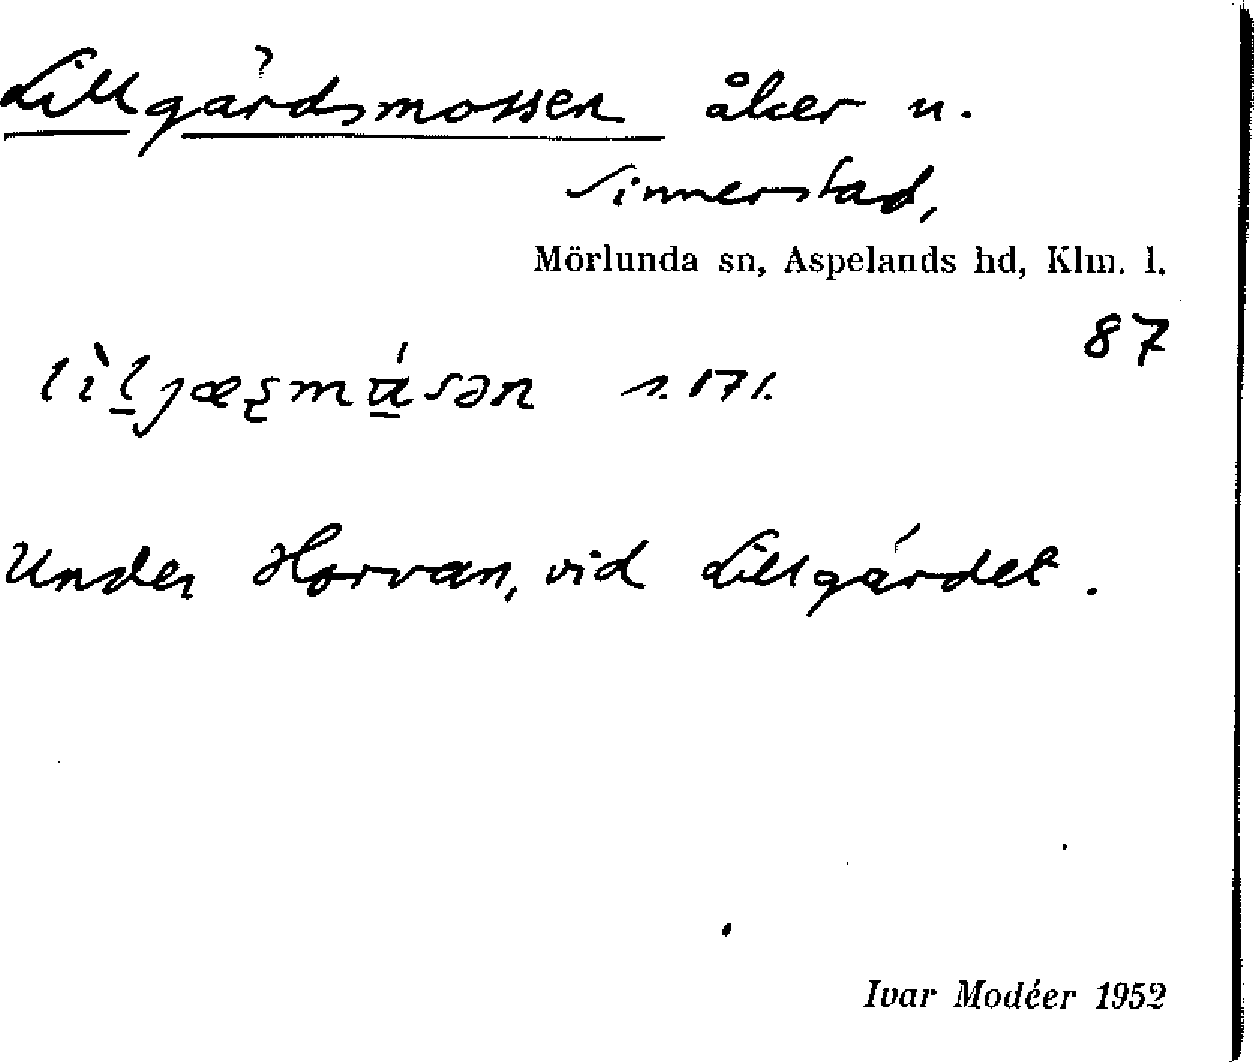 Lillgärdsmossen åker u.
Sinnerstad,
Mörlunda sn, Aspelands hd, Klm. l.
87
Under Horvan, vid Lillgärdet.
Ivar Modéer 1952